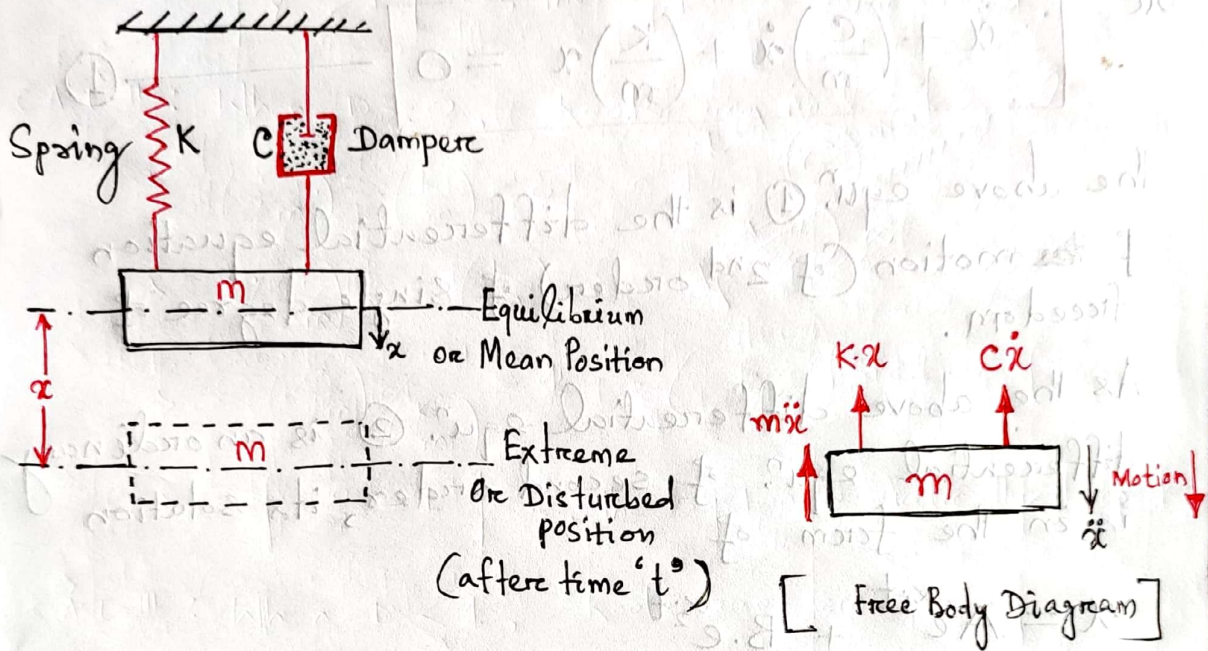 Spring
K
C
Dampere
m
Equilibrium
x
Ore Mean Position
x
m
Extreme
Ore Disturbed
position
(aftere time 't')
K.x
cẋ
mẍ
m
Motion
ẍ
[ Free Body Diagram ]